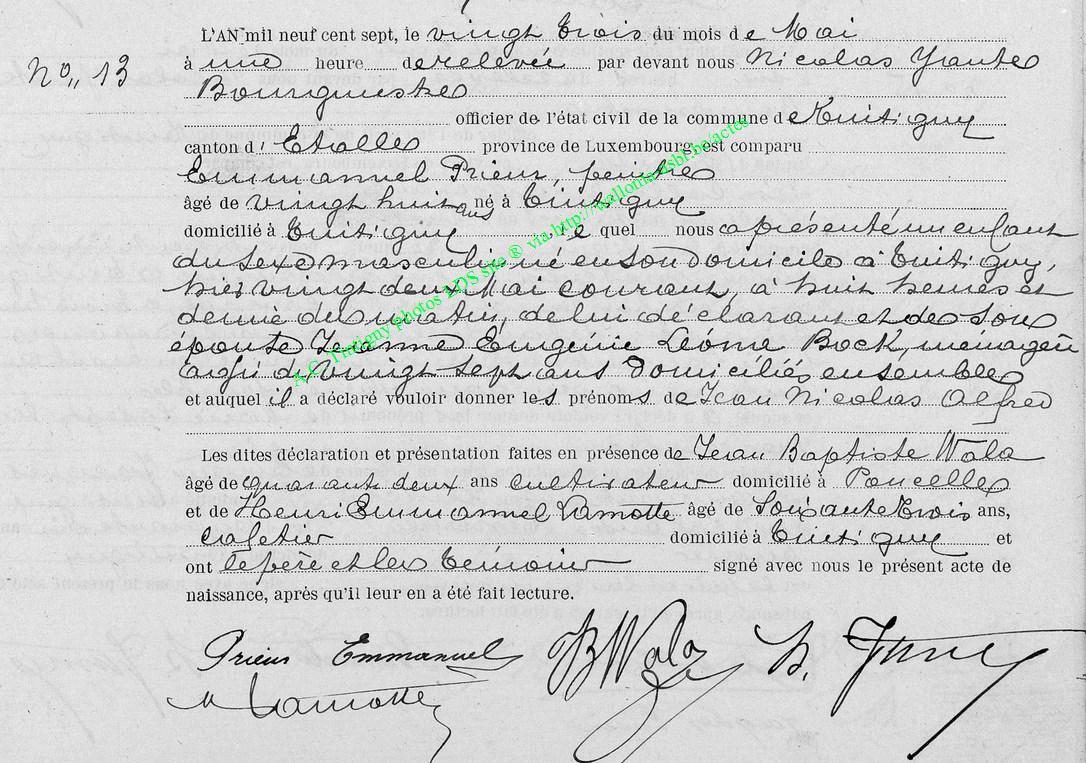 L'AN mil neuf cent sept, le vingt trois du mois de Mai
No,, 13
à une heure de relevée par devant nous Nicolas
Bourgmestre
officier de l'état civil de la commune de Tintigny
canton d'Etalle province de Luxembourg, est comparu
Emmanuel Prieur, peintre
âgé de vingt huit ans né à Tintigny
domicilié à Tintigny le quel nous a présenté un enfant
du sexe masculin, né en son domicile à Tintigny,
hier vingt deux Mai courant, à huit heures et
demie du matin, de lui déclarant et de son
épouse Jeanne Eugénie Léonie Bock, ménagère
âgée de vingt-sept ans domiciliés ensemble
et auquel il a déclaré vouloir donner les prénoms de Jean Nicolas Alfred
Les dites déclaration et présentation faites en présence de Jean Baptiste Wala
âgé de quarante deux ans cultivateur domicilié à Poncelle
et de Henri Emmanuel Lamotte âgé de Soixante trois ans,
cafetier domicilié à Tintigny et
ont le père et les témoins signé avec nous le présent acte de
naissance, après qu'il leur en a été fait lecture.
Prieur Emmanuel JBWala
Lamotte
A.C. Tintigny photos LDS site ® via http://wallonia.asbl.be/actes